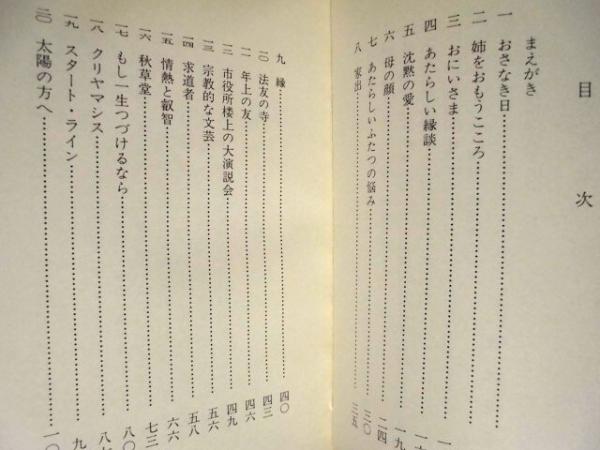 目次
まえがき
一 おさなき日
二 姉をおもうこころ
三 おにいさま
四 あたらしい縁談
五 沈黙の愛
六 母の顔 二四
七 あたらしいふたつの悩み 三〇
八 家出 三五
九 縁 四〇
一〇 法友の寺 四三
一一 年上の友 四六
一二 市役所楼上の大演説会 四九
一三 宗教的な文芸 五六
一四 求道者 五八
一五 情熱と叡智 六六
一六 秋草堂 七三
一七 もし一生つづけるなら 八〇
一八 クリヤマシス
一九 スタート・ライン
二〇 太陽の方へ